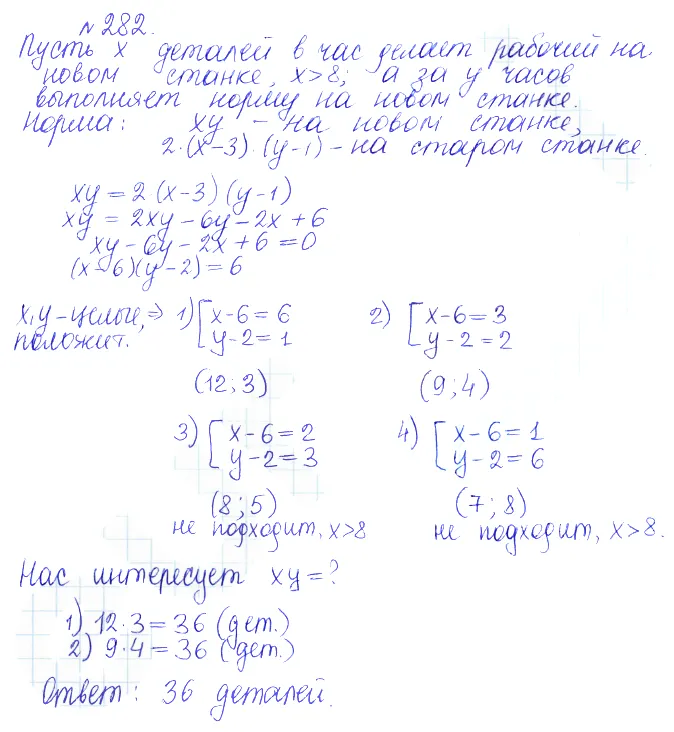 № 282.
Пусть x деталей в час делает рабочий на
новом станке, x>8; а за y часов
выполняет норму на новом станке.
Норма: xy – на новом станке,
2·(x–3)·(y–1) – на старом станке.
xy = 2(x–3)(y–1)
xy = 2xy – 6y – 2x + 6
xy – 6y – 2x + 6 = 0
(x–6)(y–2) = 6
x, y – целые, ⇒ 1) [ x–6 = 6 2) [ x–6 = 3
положит. y–2 = 1 y–2 = 2
(12; 3) (9; 4)
3) [ x–6 = 2 4) [ x–6 = 1
y–2 = 3 y–2 = 6
(8; 5) (7; 8)
не подходит, x>8 не подходит, x>8.
Нас интересует xy = ?
1) 12·3 = 36 (дет.)
2) 9·4 = 36 (дет.)
Ответ: 36 деталей.